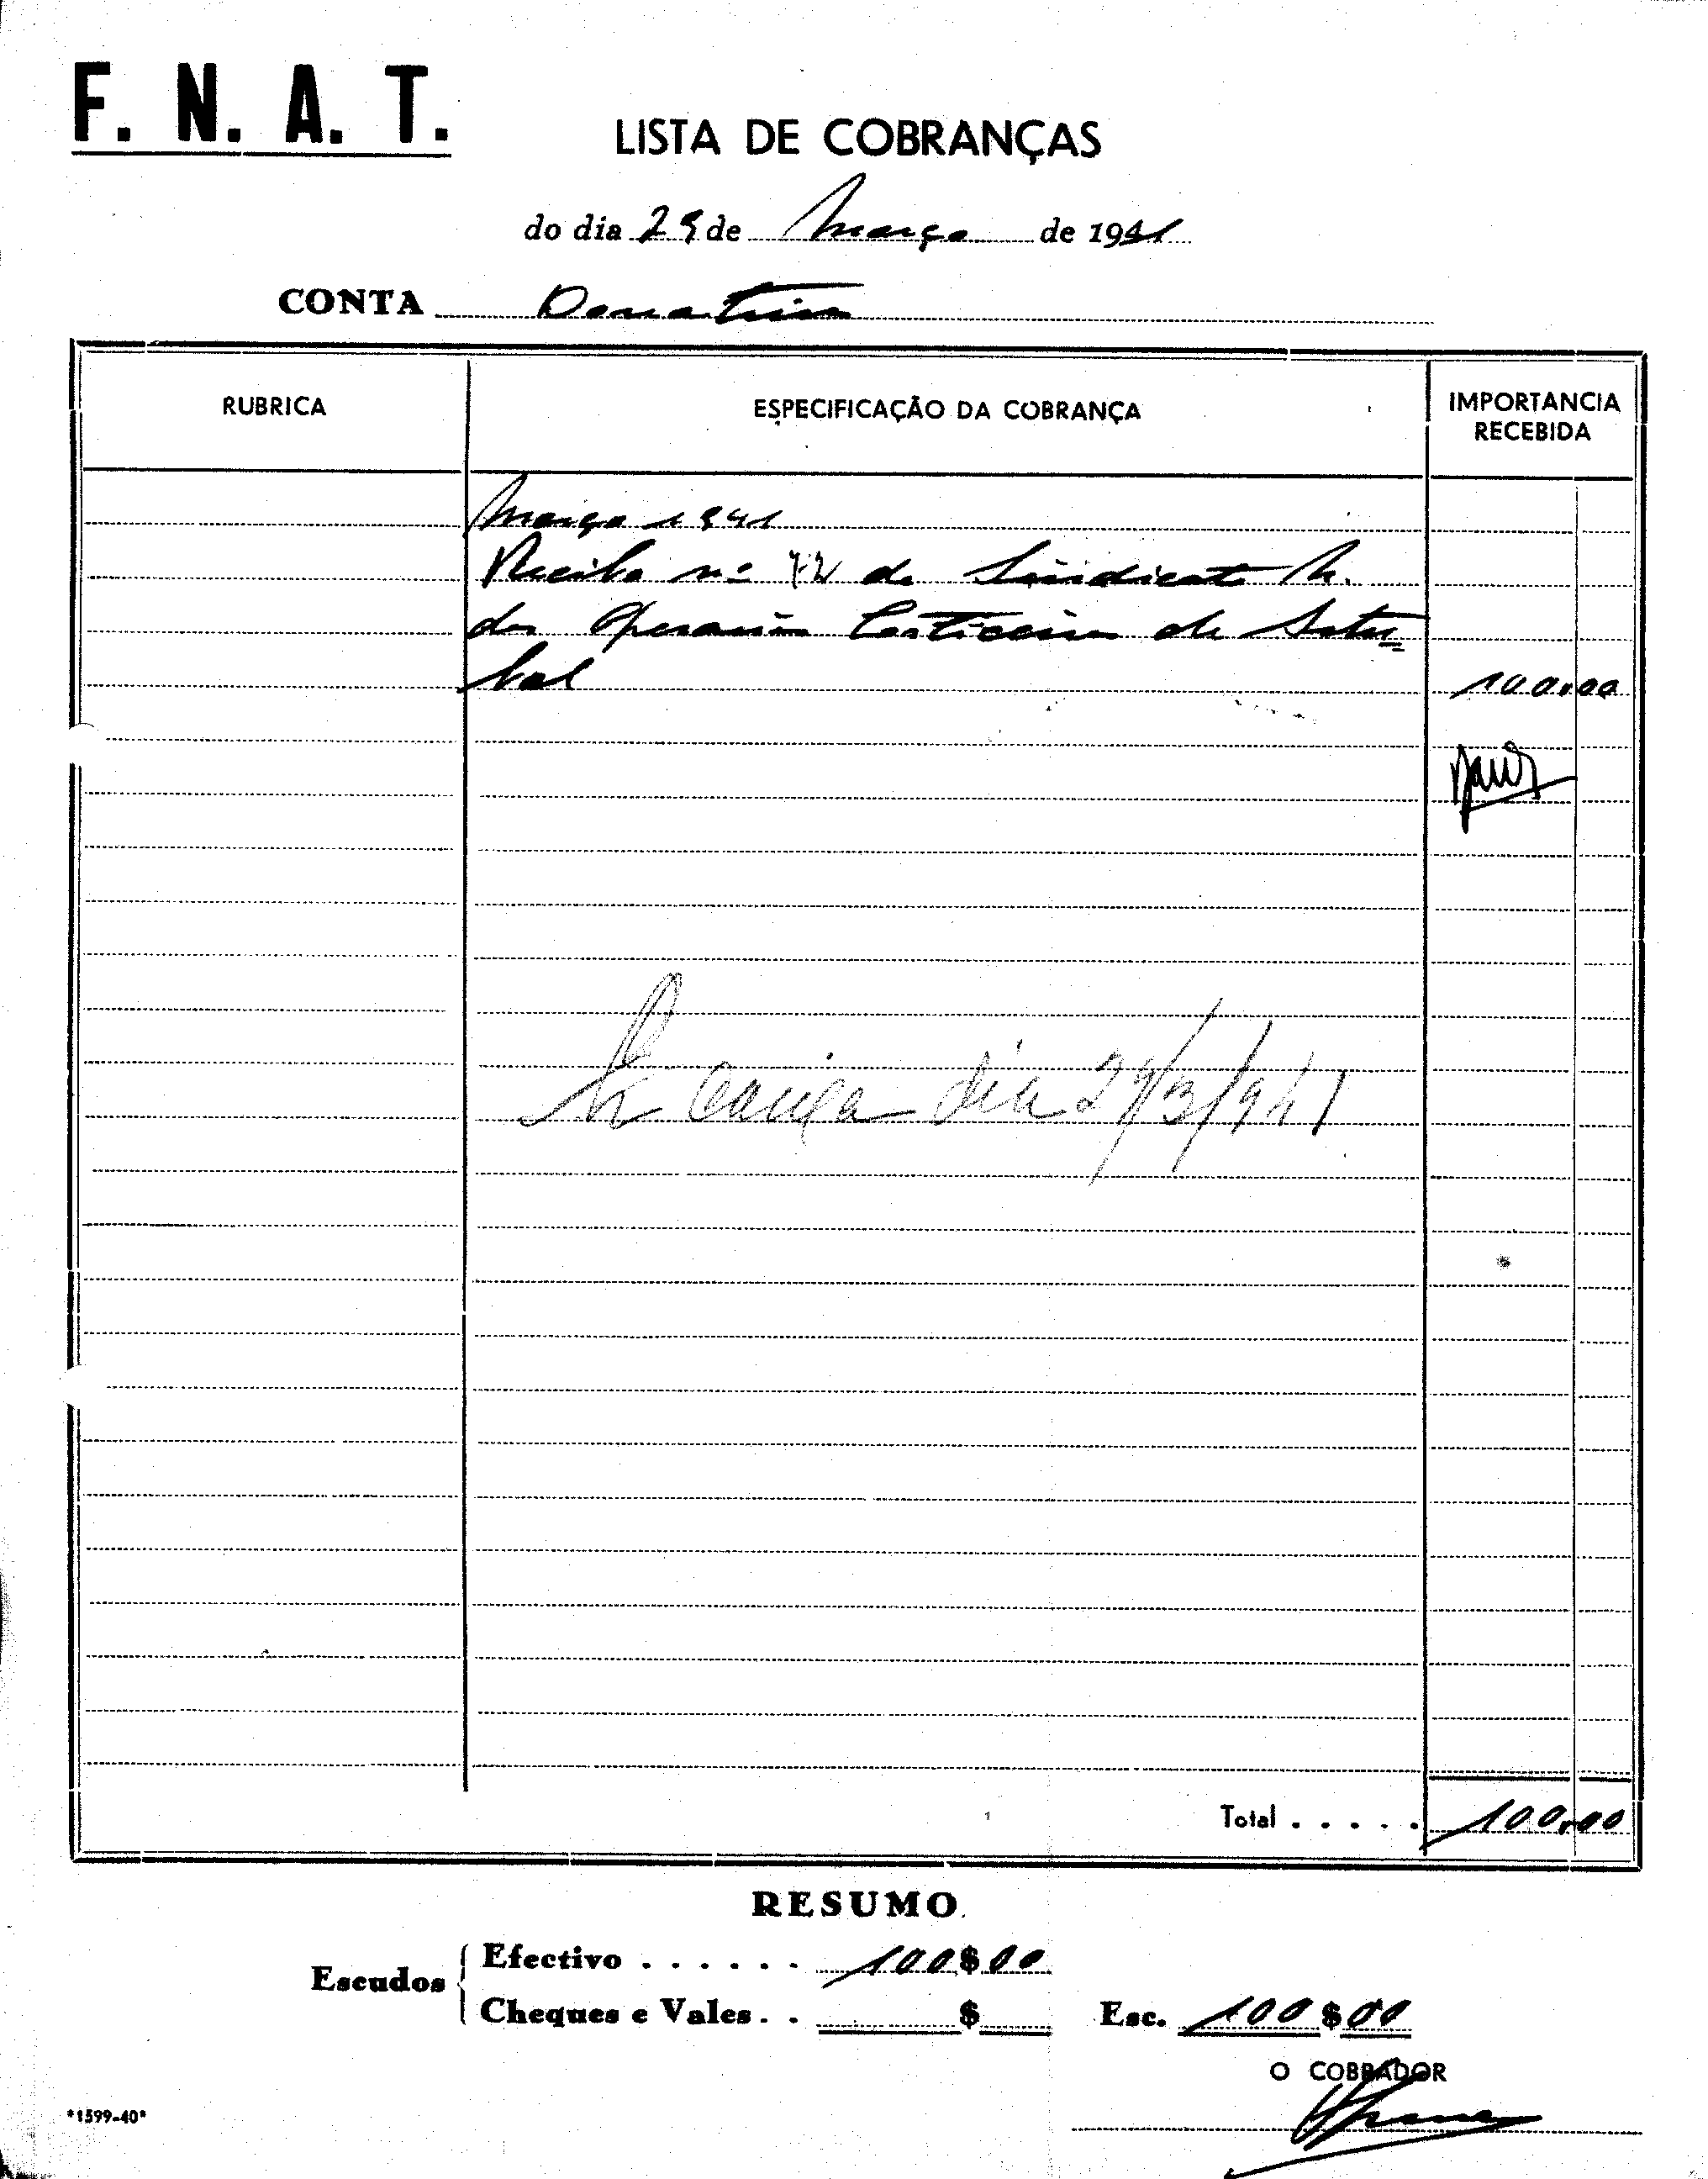 F. N. A. T.
LISTA DE COBRANÇAS
do dia 29 de Março de 1941
CONTA Donativos
RUBRICA
ESPECIFICAÇÃO DA COBRANÇA
IMPORTANCIA
RECEBIDA
Março 1941
Recibo nº 72 do Sindicato N.
dos Operarios Corticeiros de Setu=
bal
100,00
Caixa dia 29/3/941
Total . . . . . 100,00
RESUMO
Escudos
Efectivo . . . . . . 100$00
Cheques e Vales . . $
Esc. 100$00
O COBRADOR
*1599-40*